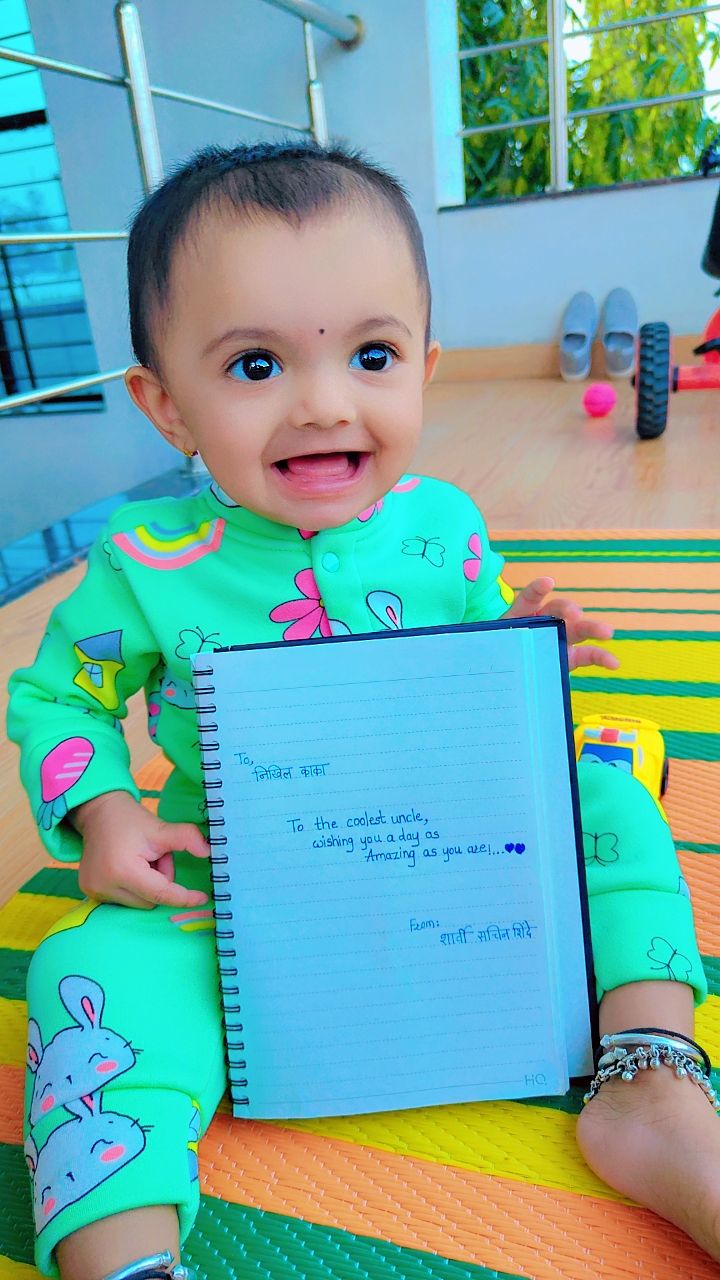 To,
निखिल काका
To the coolest uncle,
wishing you a day as
Amazing as you are!...
From:
शार्वी सचिन शिंदे
HQ